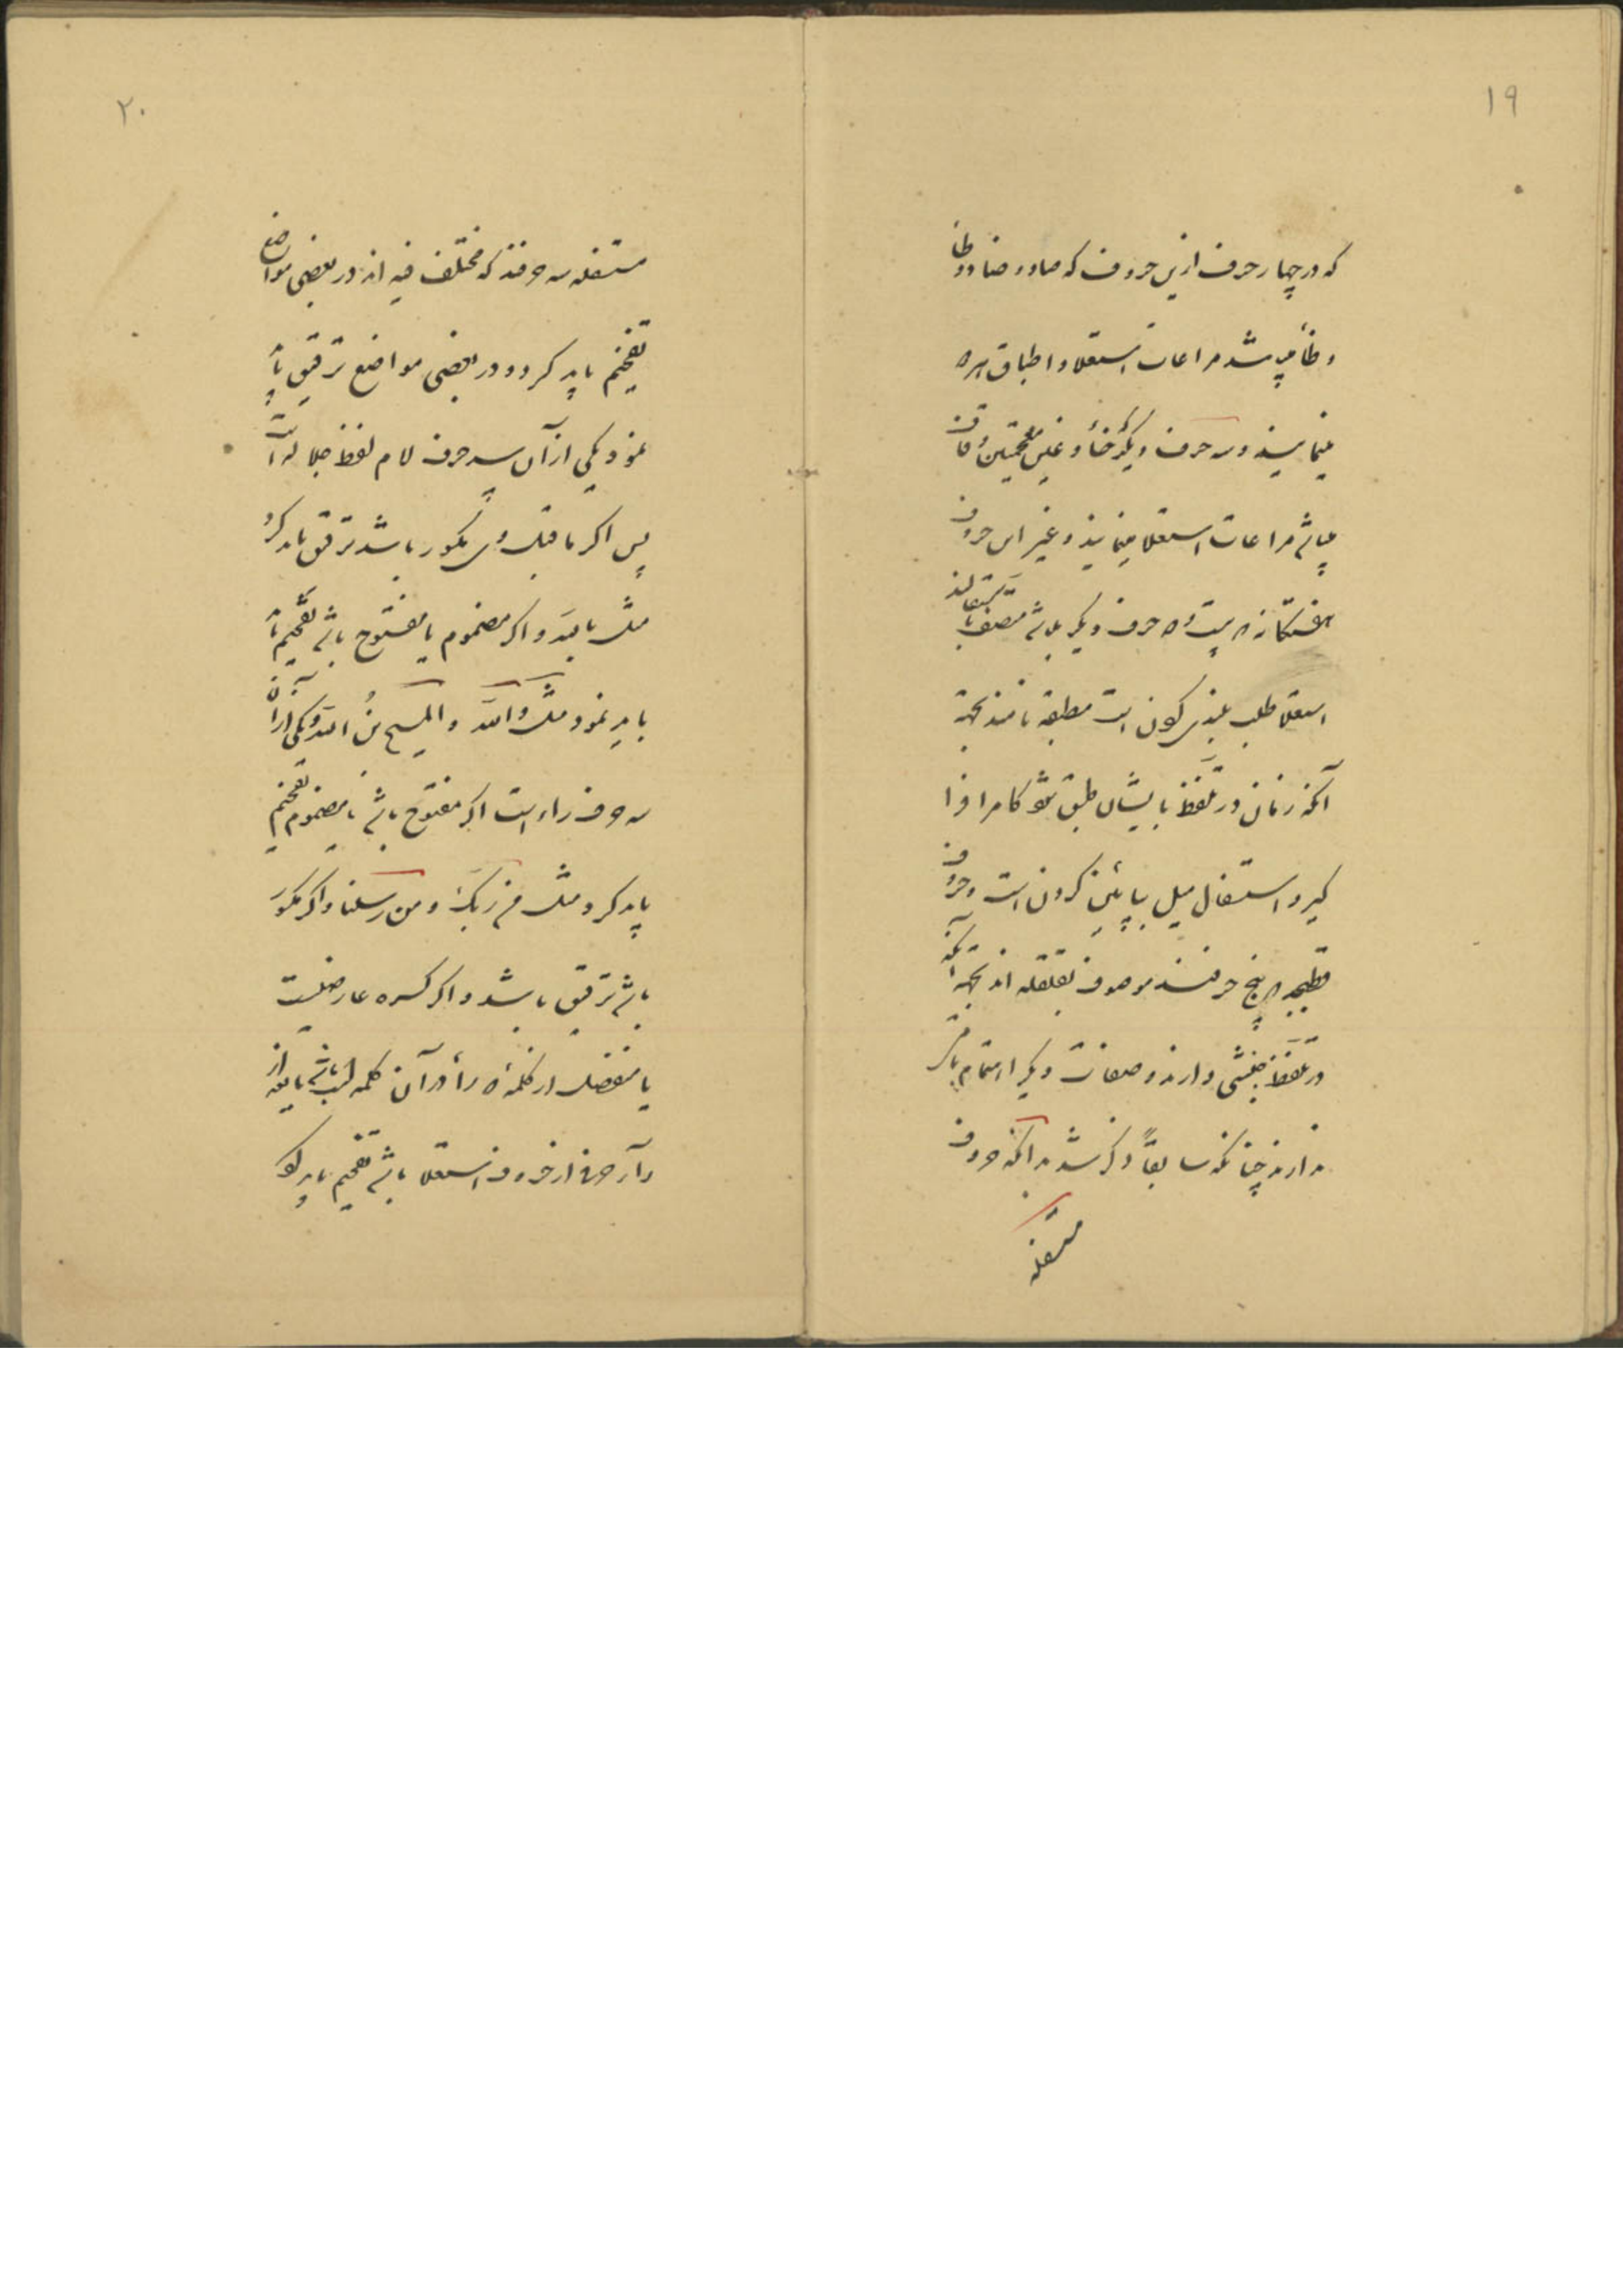 ۱۹
که در چهار حرف ازین حروف که صاد و ضاد و طا
و ظا میباشد مراعات استعلا و اطباق هر دو
مینمایند و سه حرف دیگر خا و غین معجمتین و قاف
میباشد مراعات استعلا مینمایند و غیر این حروف
هفتگانه که بیست و دو حرف دیگر باشد متصف باستفالند
استعلا طلب بلندی کردن است مطبقه نامند بجهة
آنکه زبان در تلفظ بایشان طبق شود کام را فرا
گیرد و استفال میل بپائین کردن است و حروف
قطبجد که پنج حرفند موصوف بقلقله اند بجهة آنکه
در تلفظ جنبشی دارند و صفات دیگر اهتمام
ندارند چنانکه سابقاً ذکر شد بدانکه حروف
مستفله
۲۰
مستفله سه حرفند که مختلف فیه اند در بعضی مواضع
تفخیم باید کرد و در بعضی مواضع ترقیق باید
نمود یکی از آن سه حرف لام لفظ جلاله است
پس اگر ماقبل وی مکسور باشد ترقیق باید کرد
مثل بالله و اگر مضموم یا مفتوح باشد تفخیم
باید نمود مثل والله و المسیح بن الله و یکی از آن
سه حرف راء است اگر مفتوح باشد یا مضموم تفخیم
باید کرد مثل من ربک و من رسلنا و اگر مکسور
باشد ترقیق باشد و اگر کسره عارضیست
یا منفصل از کلمه که را در آن کلمه است باشد یا بعد از
را حرفی از حروف استعلا باشد تفخیم باید کرد